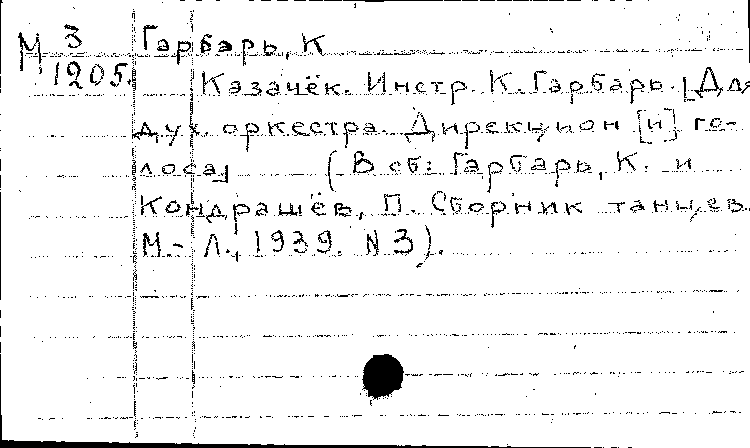 М 3 Гарбарь, К
1205. Казачёк. Инстр. К. Гарбарь. [Для
дух. оркестра. Дирекцион [и] го-
лоса] (В сб: Гарбарь, К. и
Кондрашёв, П. Сборник танцев.
М.- Л., 1939. N 3).